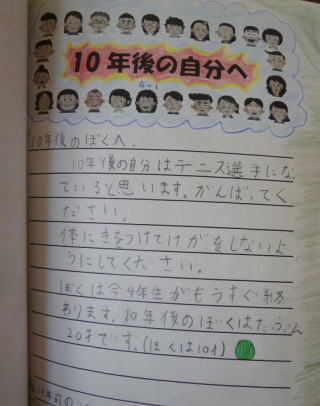 10年後の自分へ
4-1
10年後のぼくへ。
10年後の自分はテニス選手になっ
ていると思います。がんばってく
ださい。
体にきをつけてけがをしないよ
うにしてください。
ぼくは今4年生がもうすぐ終
わります。10年後のぼくはたぶん
20才です。(ぼくは10才)
10年前の